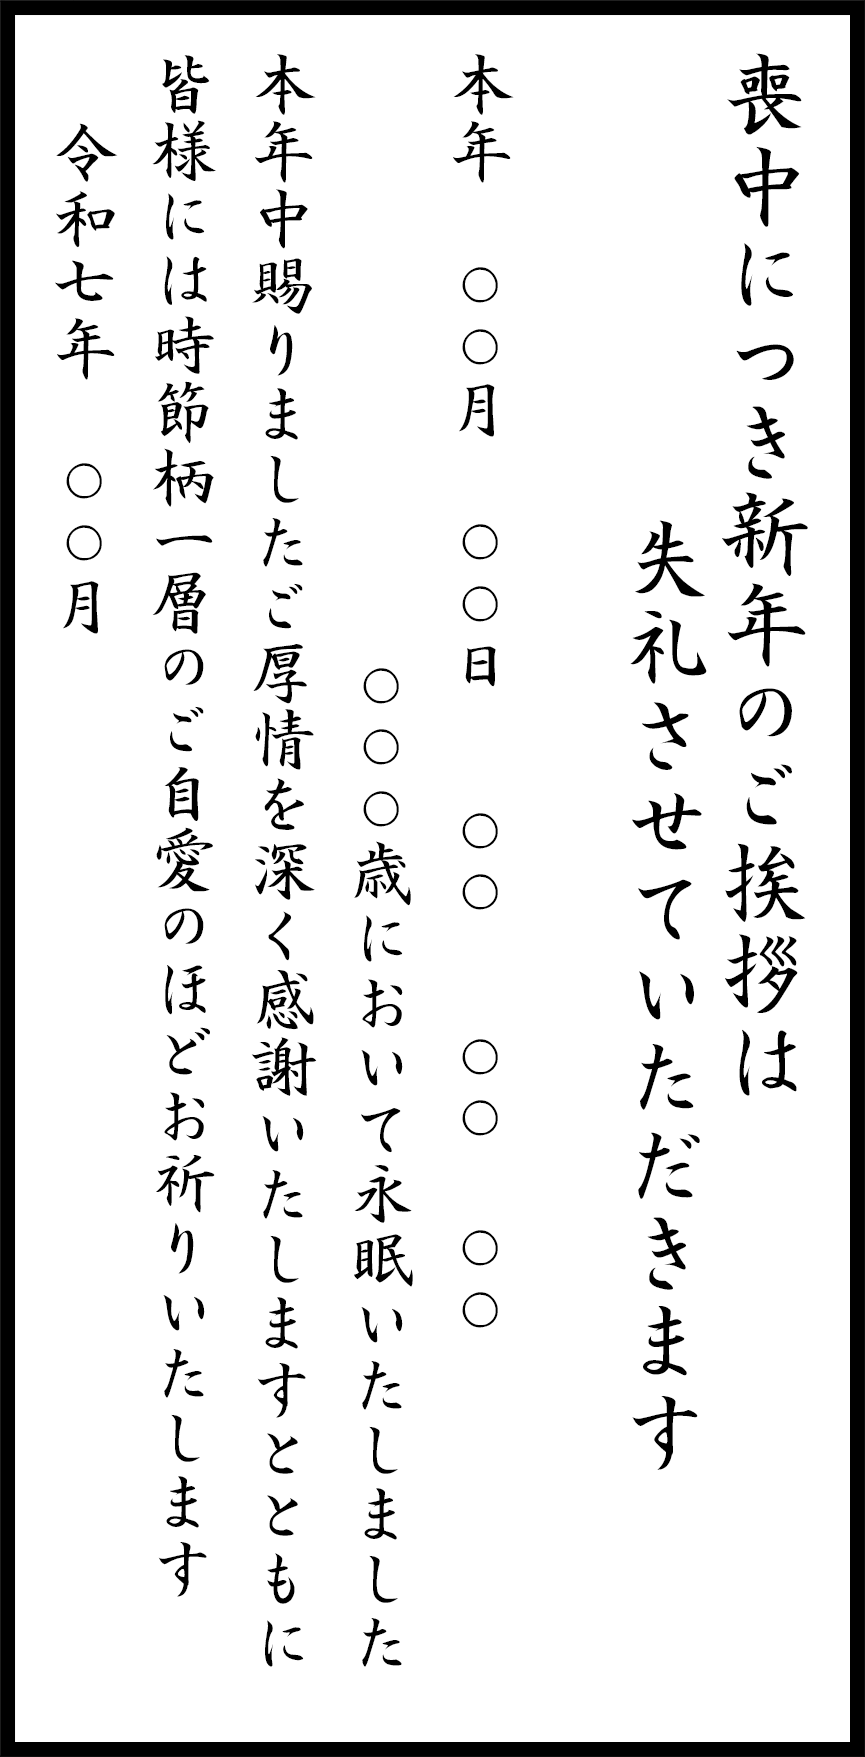 喪中につき新年のご挨拶は
失礼させていただきます
本年　○○月　○○日　○○　○○　○○
○○○歳において永眠いたしました
本年中賜りましたご厚情を深く感謝いたしますとともに
皆様には時節柄一層のご自愛のほどお祈りいたします
令和七年　○○月